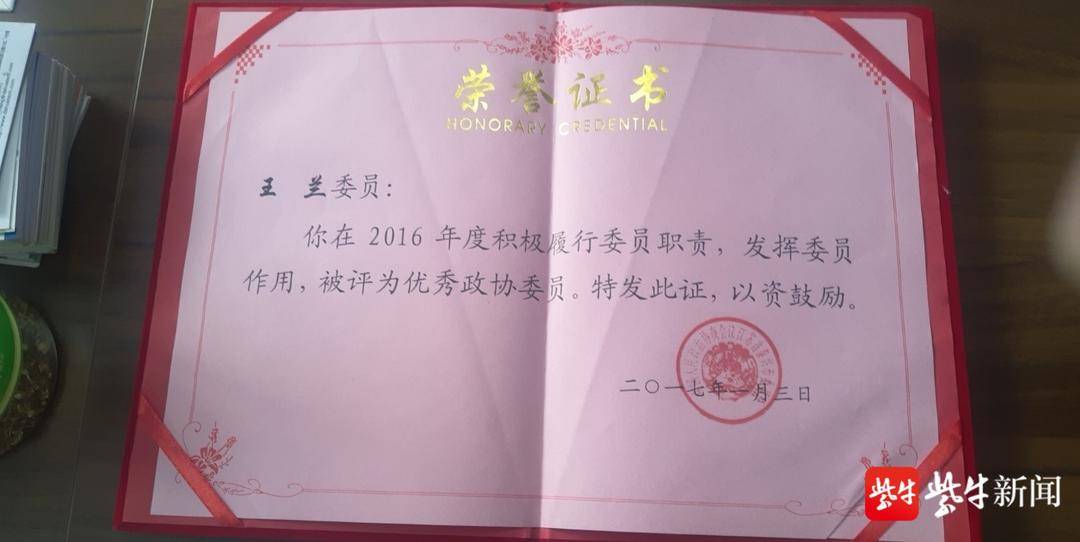 荣誉证书
HONORARY CREDENTIAL
王 兰委员：
你在 2016 年度积极履行委员职责，发挥委员
作用，被评为优秀政协委员。特发此证，以资鼓励。
二〇一七年一月三日
紫牛 紫牛新闻